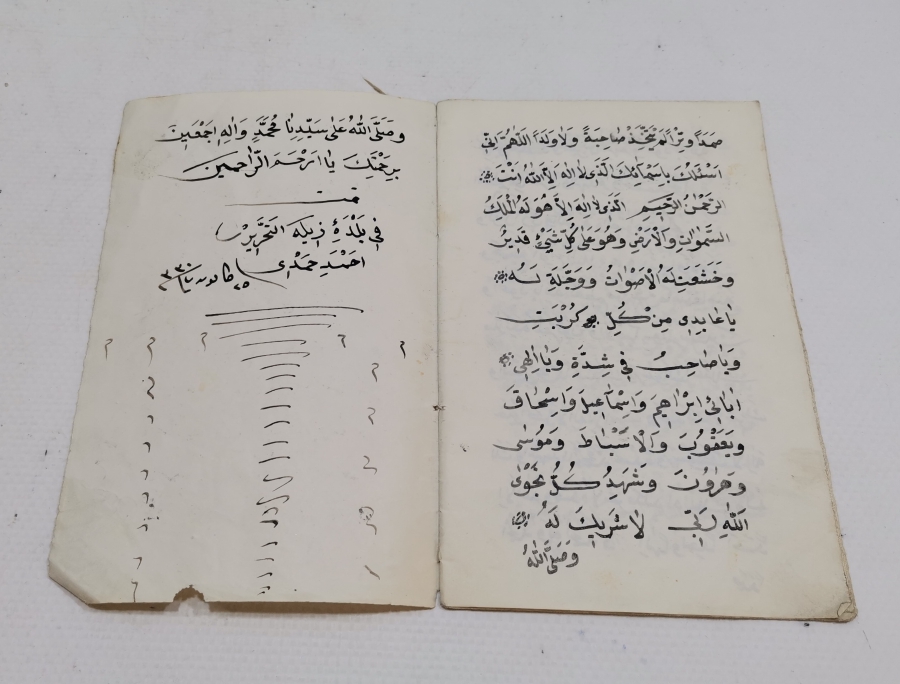 صَمَدًا وِتْرًا لَمْ يَتَّخِذْ صَاحِبَةً وَلَا وَلَدًا اَللّٰهُمَّ اِنِّي
اَسْئَلُكَ بِاَسْمَائِكَ الَّذِي لَا اِلٰهَ اِلَّا اللّٰهُ اَنْتَ
الرَّحْمٰنُ الرَّحِيمِ الَّذِي لَا اِلٰهَ اِلَّا هُوَ لَهُ الْمُلْكُ
السَّمٰوَاتِ وَالْاَرْضِ وَهُوَ عَلٰى كُلِّ شَيْءٍ قَدِيرٌ
وَخَشَعَتْ لَهُ الْاَصْوَاتُ وَوَجِلَةِ لَهُ
يَا عَابِدِي مِنْ كُلِّ كُرْبَتِ
وَيَا صَاحِبُ فِي شِدَّةِ وَيَا اِلٰهِي
اٰبَائِي اِبْرَاهِيمَ وَاِسْمَاعِيلَ وَاِسْحَاقَ
وَيَعْقُوبَ وَالْاَسْبَاطَ وَمُوسٰى
وَهٰرُونَ وَشَهِدُ كُلُّ نَجْوٰى
اَللّٰهُ رَبِّي لَا شَرِيكَ لَهُ
وَصَلَّى اللّٰهُ
وَصَلَّى اللّٰهُ عَلٰى سَيِّدِنَا مُحَمَّدٍ وَاٰلِهِ اَجْمَعِينَ
بِرَحْمَتِكَ يَا اَرْحَمَ الرَّاحِمِينَ
تمت
فِي بَلْدَةِ زيله التَّحْرِيرْ
اَحْمَدِ حَمْدِي
٢٥ كانون ٣٣٠